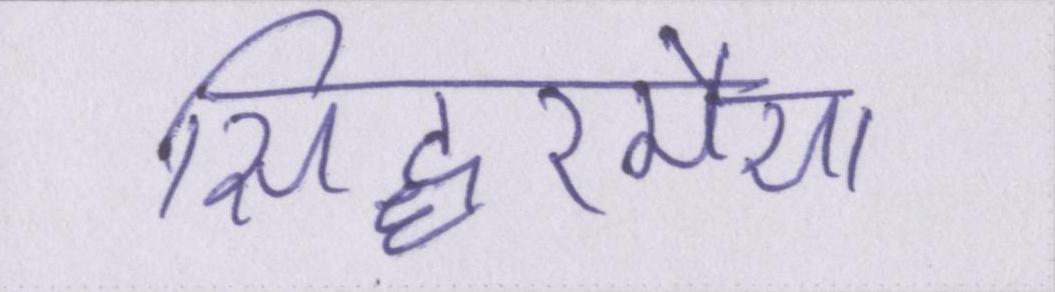 सिद्धरमैया